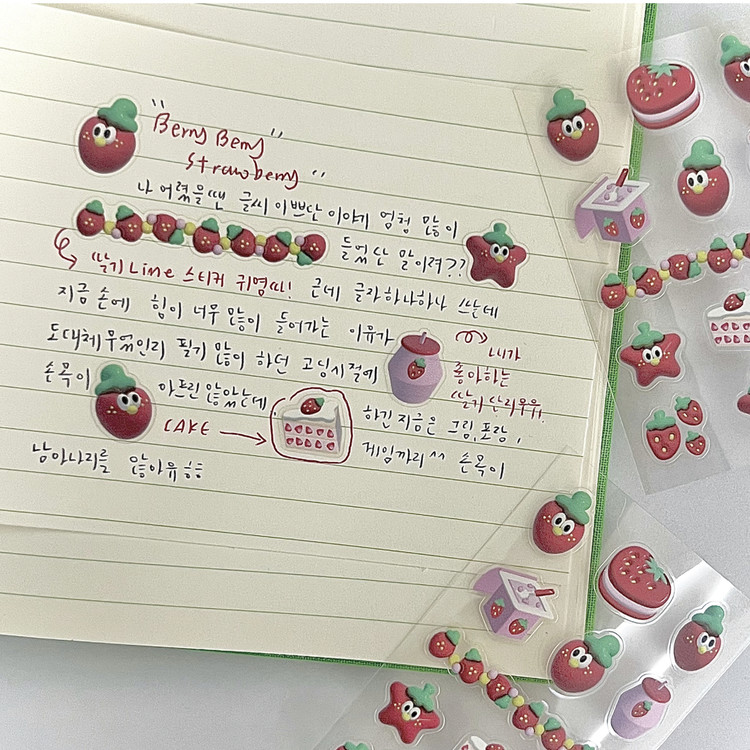 "Berry Berry"
Strawberry"
나 어렸을땐 글씨 이쁘단 이야기 엄청 많이
들었단 말이려??
딸기 Lime 스티커 귀염띠! 근데 글자 하나하나 쓰는데
지금 손에 힘이 너무 많이 들어가는 이유가
도대체 무엇인리 필기 많이 하던 고딩시절에
내가
좋아하는
딸기 단리우유.
손목이 아프진 않았는데, 하긴 지금은 그림, 포람,
CAKE
게임까리 ^^ 손목이
남아나리를 않아유 ㅎㅎ